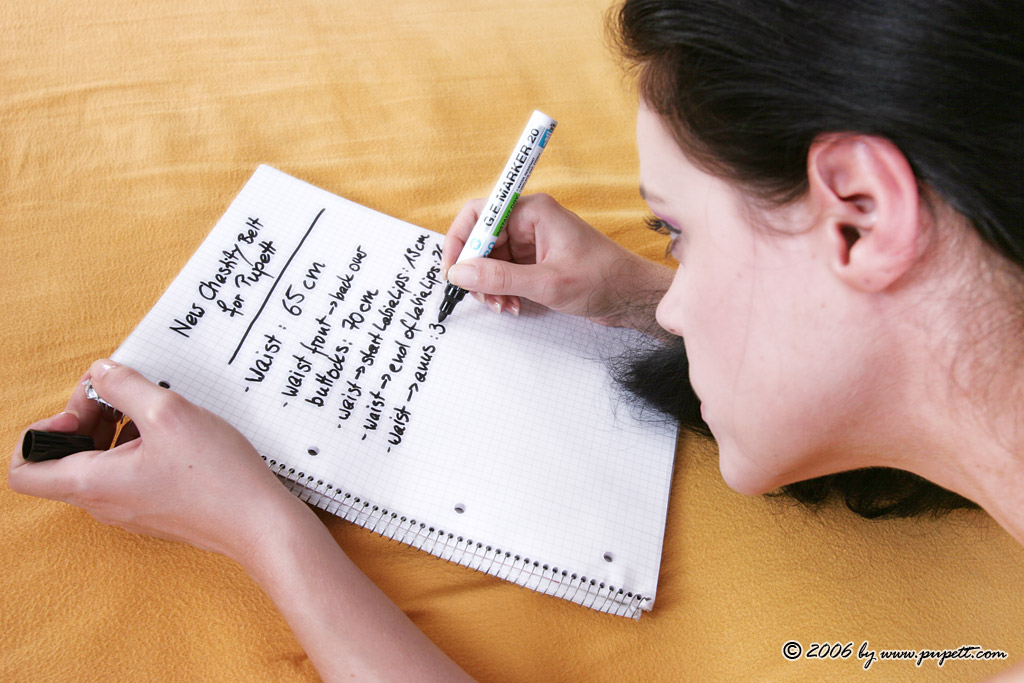 New Chastity Belt
for Pupett
- Waist: 65 cm
- waist front → back over
buttocks: 70 cm
- waist → start Labia Lips: 19cm
- waist → end of labia lips: 2
- waist → anus: 3
G.E. MARKER 20
© 2006 by www.pupett.com